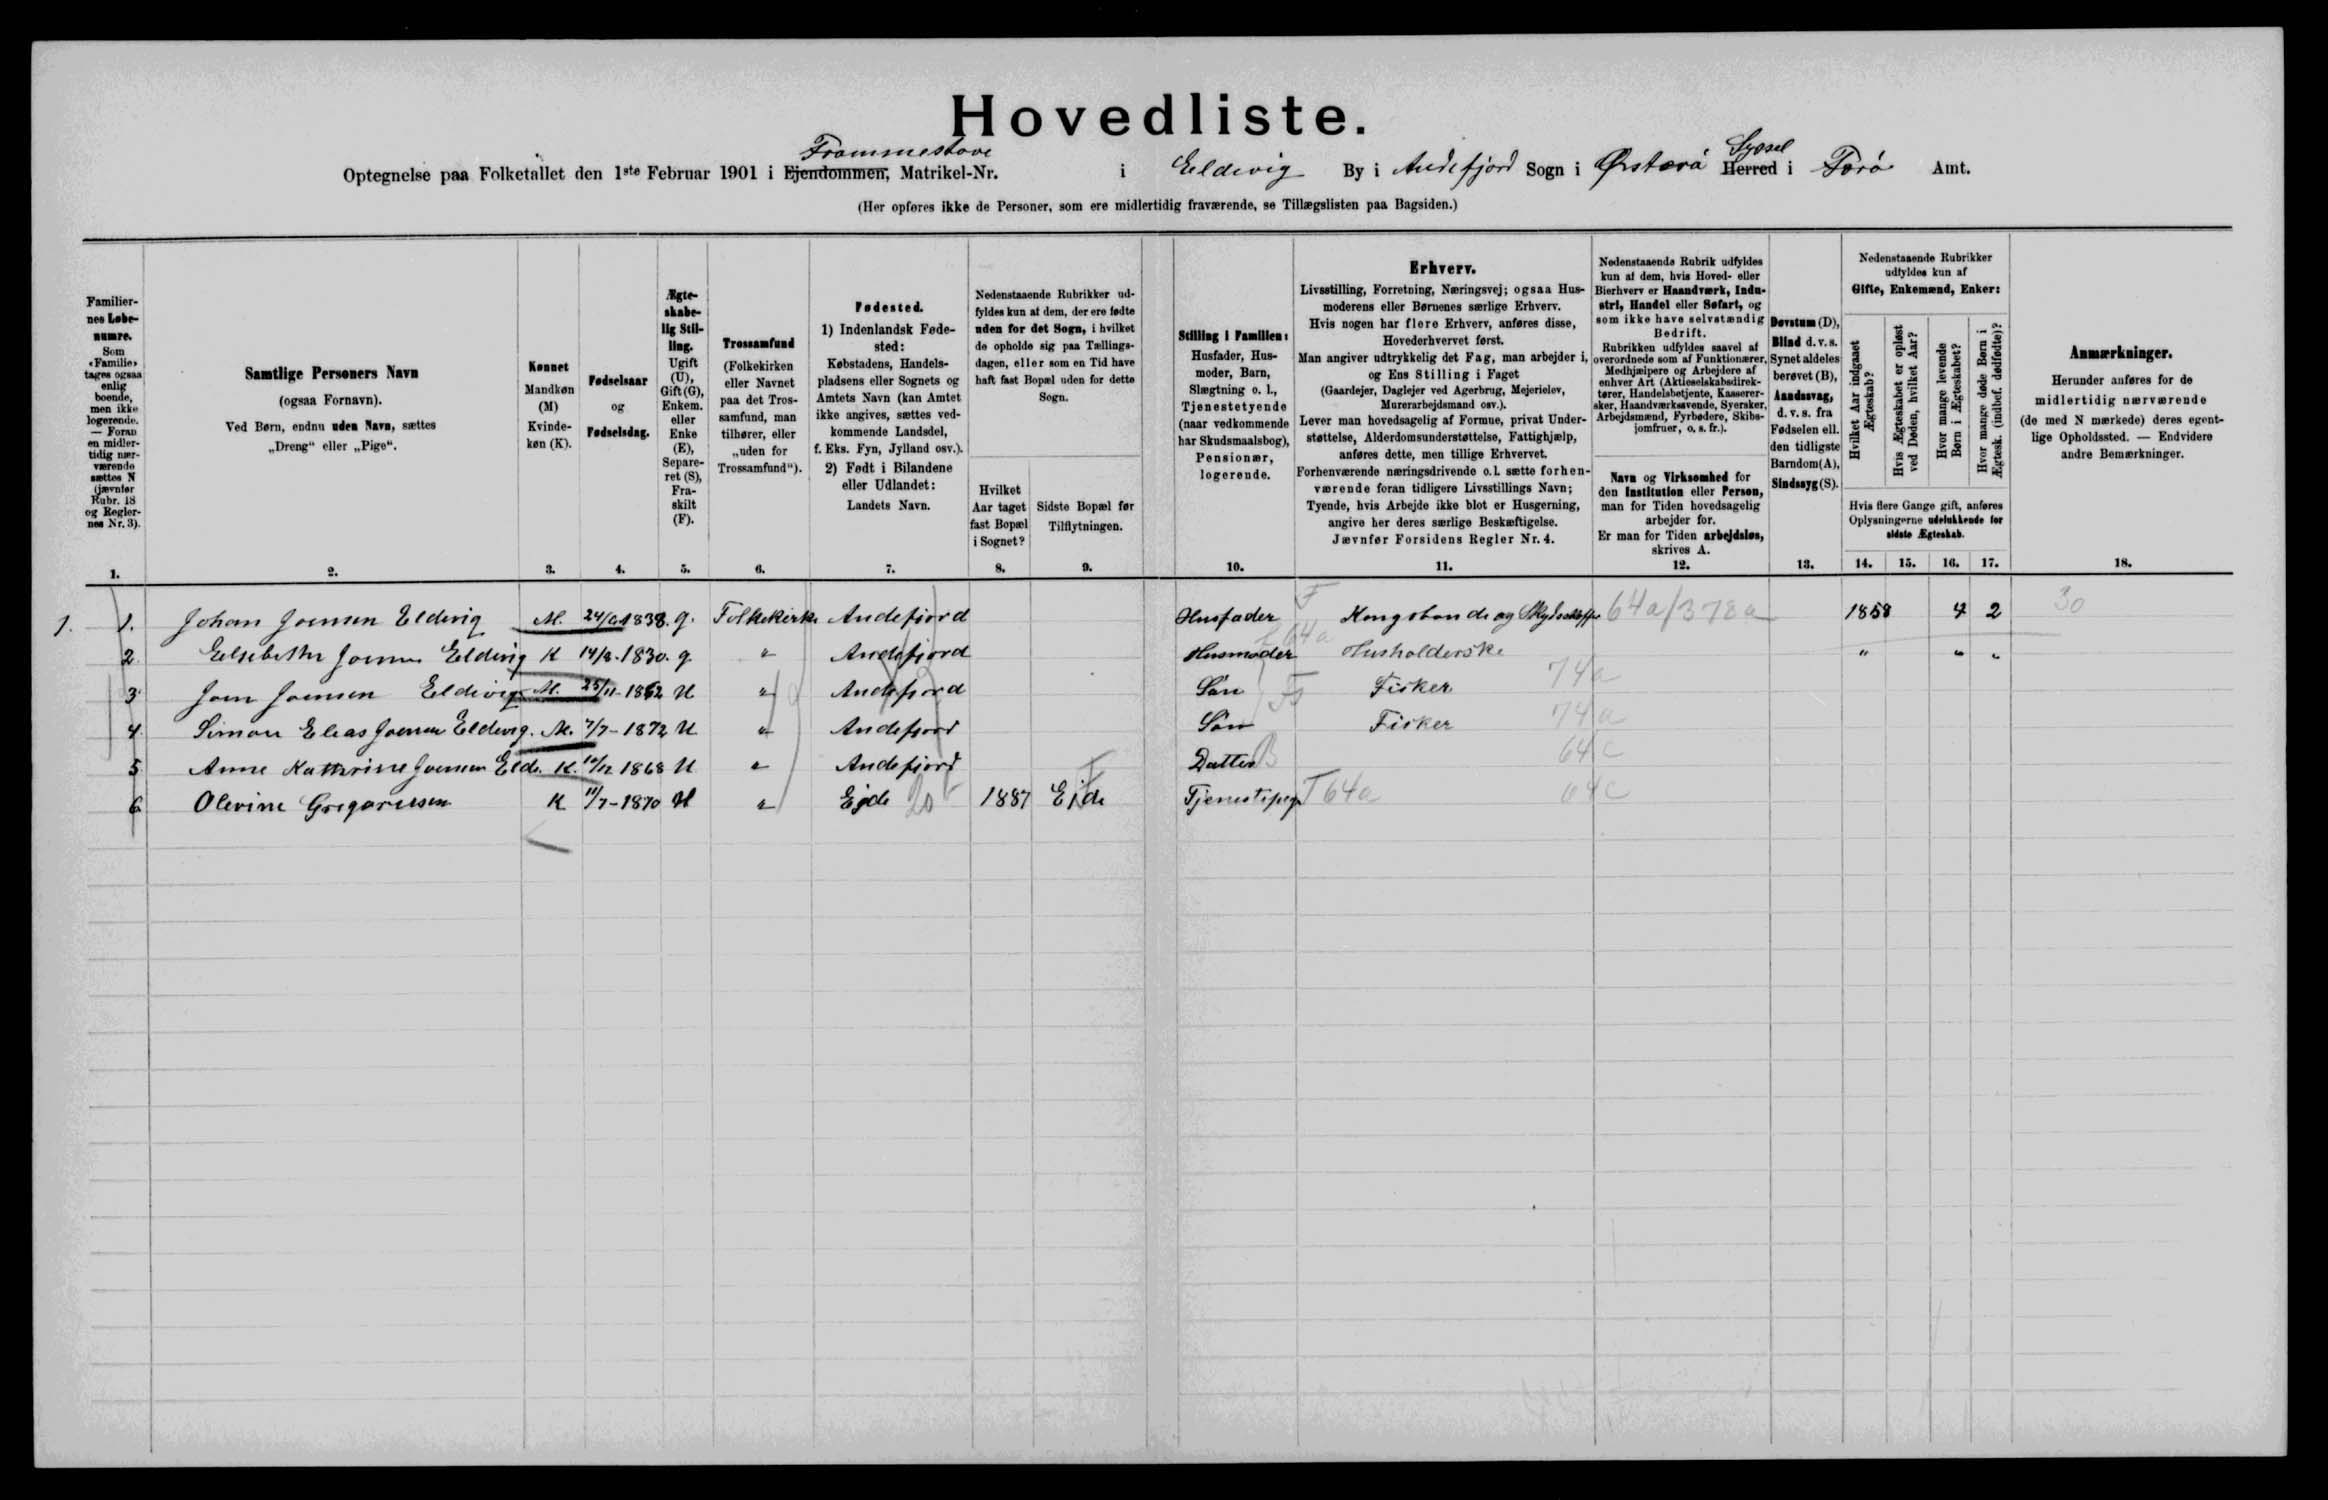 Hovedliste.
Frammestove Syssel
Optegnelse paa Folketallet den 1ste Februar 1901 i Ejendommen, Matrikel-Nr. i Eldevig By i Andefjord Sogn i Østerø Herred i Færø Amt.
(Her opføres ikke de Personer, som ere midlertidig fraværende, se Tillægslisten paa Bagsiden.)
Familiernes Løbenumre.
Som «Familie» tages ogsaa enlig boende, men ikke logerende. — Foran en midlertidig nærværende sættes N (jævnfør Rubr. 18 og Reglernes Nr. 3).
1.
Samtlige Personers Navn
(ogsaa Fornavn).
Ved Børn, endnu uden Navn, sættes
„Dreng“ eller „Pige“.
2.
Kønnet
Mandkøn (M)
Kvindekøn (K).
3.
Fødselsaar
og
Fødselsdag.
4.
Ægteskabelig Stilling.
Ugift (U), Gift (G), Enkem. eller Enke (E), Separeret (S), Fraskilt (F).
5.
Trossamfund
(Folkekirken eller Navnet paa det Trossamfund, man tilhører, eller „uden for Trossamfund“).
6.
Fødested.
1) Indenlandsk Fødested:
Købstadens, Handelspladsens eller Sognets og Amtets Navn (kan Amtet ikke angives, sættes vedkommende Landsdel, f. Eks. Fyn, Jylland osv.).
2) Født i Bilandene eller Udlandet:
Landets Navn.
7.
Nedenstaaende Rubrikker udfyldes kun af dem, der ere fødte uden for det Sogn, i hvilket de opholde sig paa Tællingsdagen, eller som en Tid have haft fast Bopæl uden for dette Sogn.
Hvilket Aar taget fast Bopæl i Sognet?
8.
Sidste Bopæl før Tilflytningen.
9.
Stilling i Familien:
Husfader, Husmoder, Barn, Slægtning o. l., Tjenestetyende (naar vedkommende har Skudsmaalsbog), Pensionær, logerende.
10.
Erhverv.
Livsstilling, Forretning, Næringsvej; ogsaa Husmoderens eller Børnenes særlige Erhverv.
Hvis nogen har flere Erhverv, anføres disse, Hovederhvervet først.
Man angiver udtrykkelig det Fag, man arbejder i, og Ens Stilling i Faget
(Gaardejer, Daglejer ved Agerbrug, Mejerielev, Murerarbejdsmand osv.).
Lever man hovedsagelig af Formue, privat Understøttelse, Alderdomsunderstøttelse, Fattighjælp, anføres dette, men tillige Erhvervet.
Forhenværende næringsdrivende o. l. sætte forhenværende foran tidligere Livsstillings Navn;
Tyende, hvis Arbejde ikke blot er Husgerning, angive her deres særlige Beskæftigelse.
Jævnfør Forsidens Regler Nr. 4.
11.
Nedenstaaende Rubrik udfyldes kun af dem, hvis Hoved- eller Bierhverv er Haandværk, Industri, Handel eller Søfart, og som ikke have selvstændig Bedrift.
Rubrikken udfyldes saavel af overordnede som af Funktionærer, Medhjælpere og Arbejdere af enhver Art (Aktieselskabsdirektører, Handelsbetjente, Kasserersker, Haandværkssvende, Syersker, Arbejdsmænd, Fyrbødere, Skibsjomfruer, o. s. fr.).
Navn og Virksomhed for den Institution eller Person, man for Tiden hovedsagelig arbejder for.
Er man for Tiden arbejdsløs, skrives A.
12.
Døvstum (D), Blind d. v. s. Synet aldeles berøvet (B), Aandssvag, d. v. s. fra Fødselen ell. den tidligste Barndom (A), Sindssyg (S).
13.
Nedenstaaende Rubrikker udfyldes kun af
Gifte, Enkemænd, Enker:
Hvilket Aar indgaaet Ægteskab?
Hvis Ægteskabet er opløst ved Døden, hvilket Aar?
Hvor mange levende Børn i Ægteskabet?
Hvor mange døde Børn i Ægtesk. (indbef. dødfødte)?
Hvis flere Gange gift, anføres Oplysningerne udelukkende for sidste Ægteskab.
14. 15. 16. 17.
Anmærkninger.
Herunder anføres for de midlertidig nærværende (de med N mærkede) deres egentlige Opholdssted. — Endvidere andre Bemærkninger.
18.
1. 1. Johan Joensen Eldevig M. 1838. g. Folkekirke Andefjord Husfader F Kongsbonde og Skydsskaffer 64a/378a 1858 4 2 30
2. Elsebeth Joensen Eldevig K 14/8-1830. g " Andefjord Husmoder 64a Husholderske " " "
3 Joen Joensen Eldevig M. 25/11-1862 U " Andefjord Søn Fs Fisker 74a
4. Simon Elias Joensen Eldevig. M. 7/7-1872 U " Andefjord Søn Fisker 74a
5 Anne Kathrine Joensen Elde. K. 10/12 1868 U " Andefjord Datter B 64c
6 Olevine Gregoriesen K 11/7-1870 U " Ejde 20 1887 Ejde Tjenestepige T64a 64c